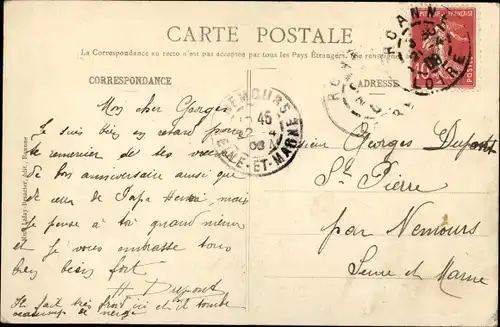 CARTE POSTALE
La Correspondance au recto n'est pas acceptée par tous les Pays Étrangers.
CORRESPONDANCE
ADRESSE
ROANNE
LOIRE
NEMOURS
SEINE-ET-MARNE
Mon cher Georges
Je suis bien en retard pour
te remercier de tes vœux
de bon anniversaire ainsi que
de ceux de Papa Henri, mais
je pense à toi quand même
et je vous embrasse tous
bien bien fort
H Dupont
Il fait très froid ici et il tombe
beaucoup de neige
Monsieur Georges Dupont
St Pierre
par Nemours
Seine et Marne